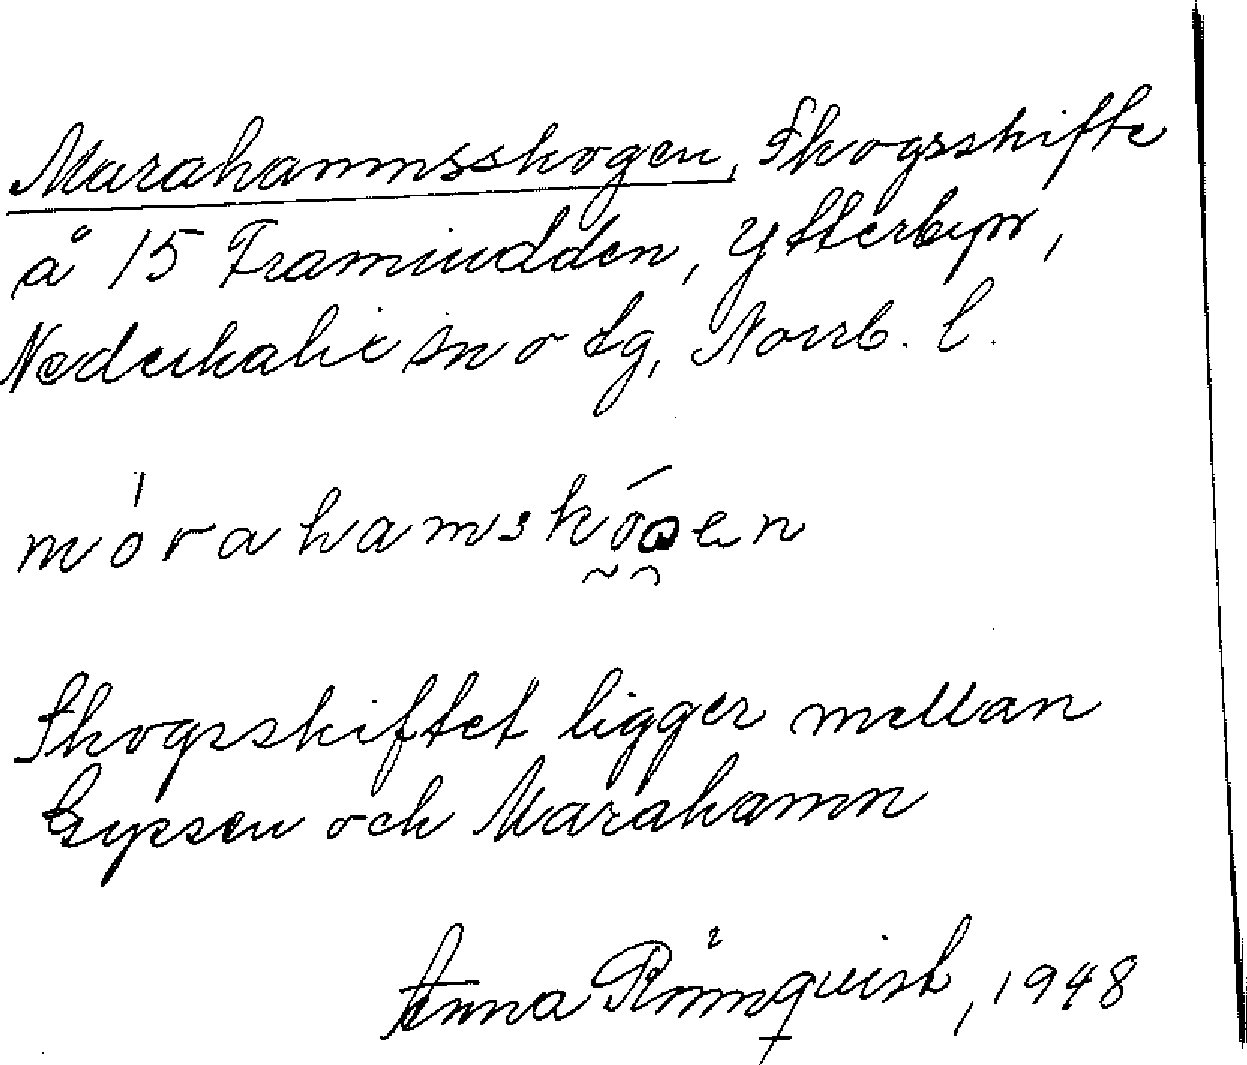 Marahamnsskogen, Skogsskifte
å 15 Framiudden, Ytterbyn,
Nederkalix sn o tg, Norrb. l.
mórahamskóɑen
Skogsskiftet ligger mellan
och Marahamn
Anna Rönnqvist, 1948